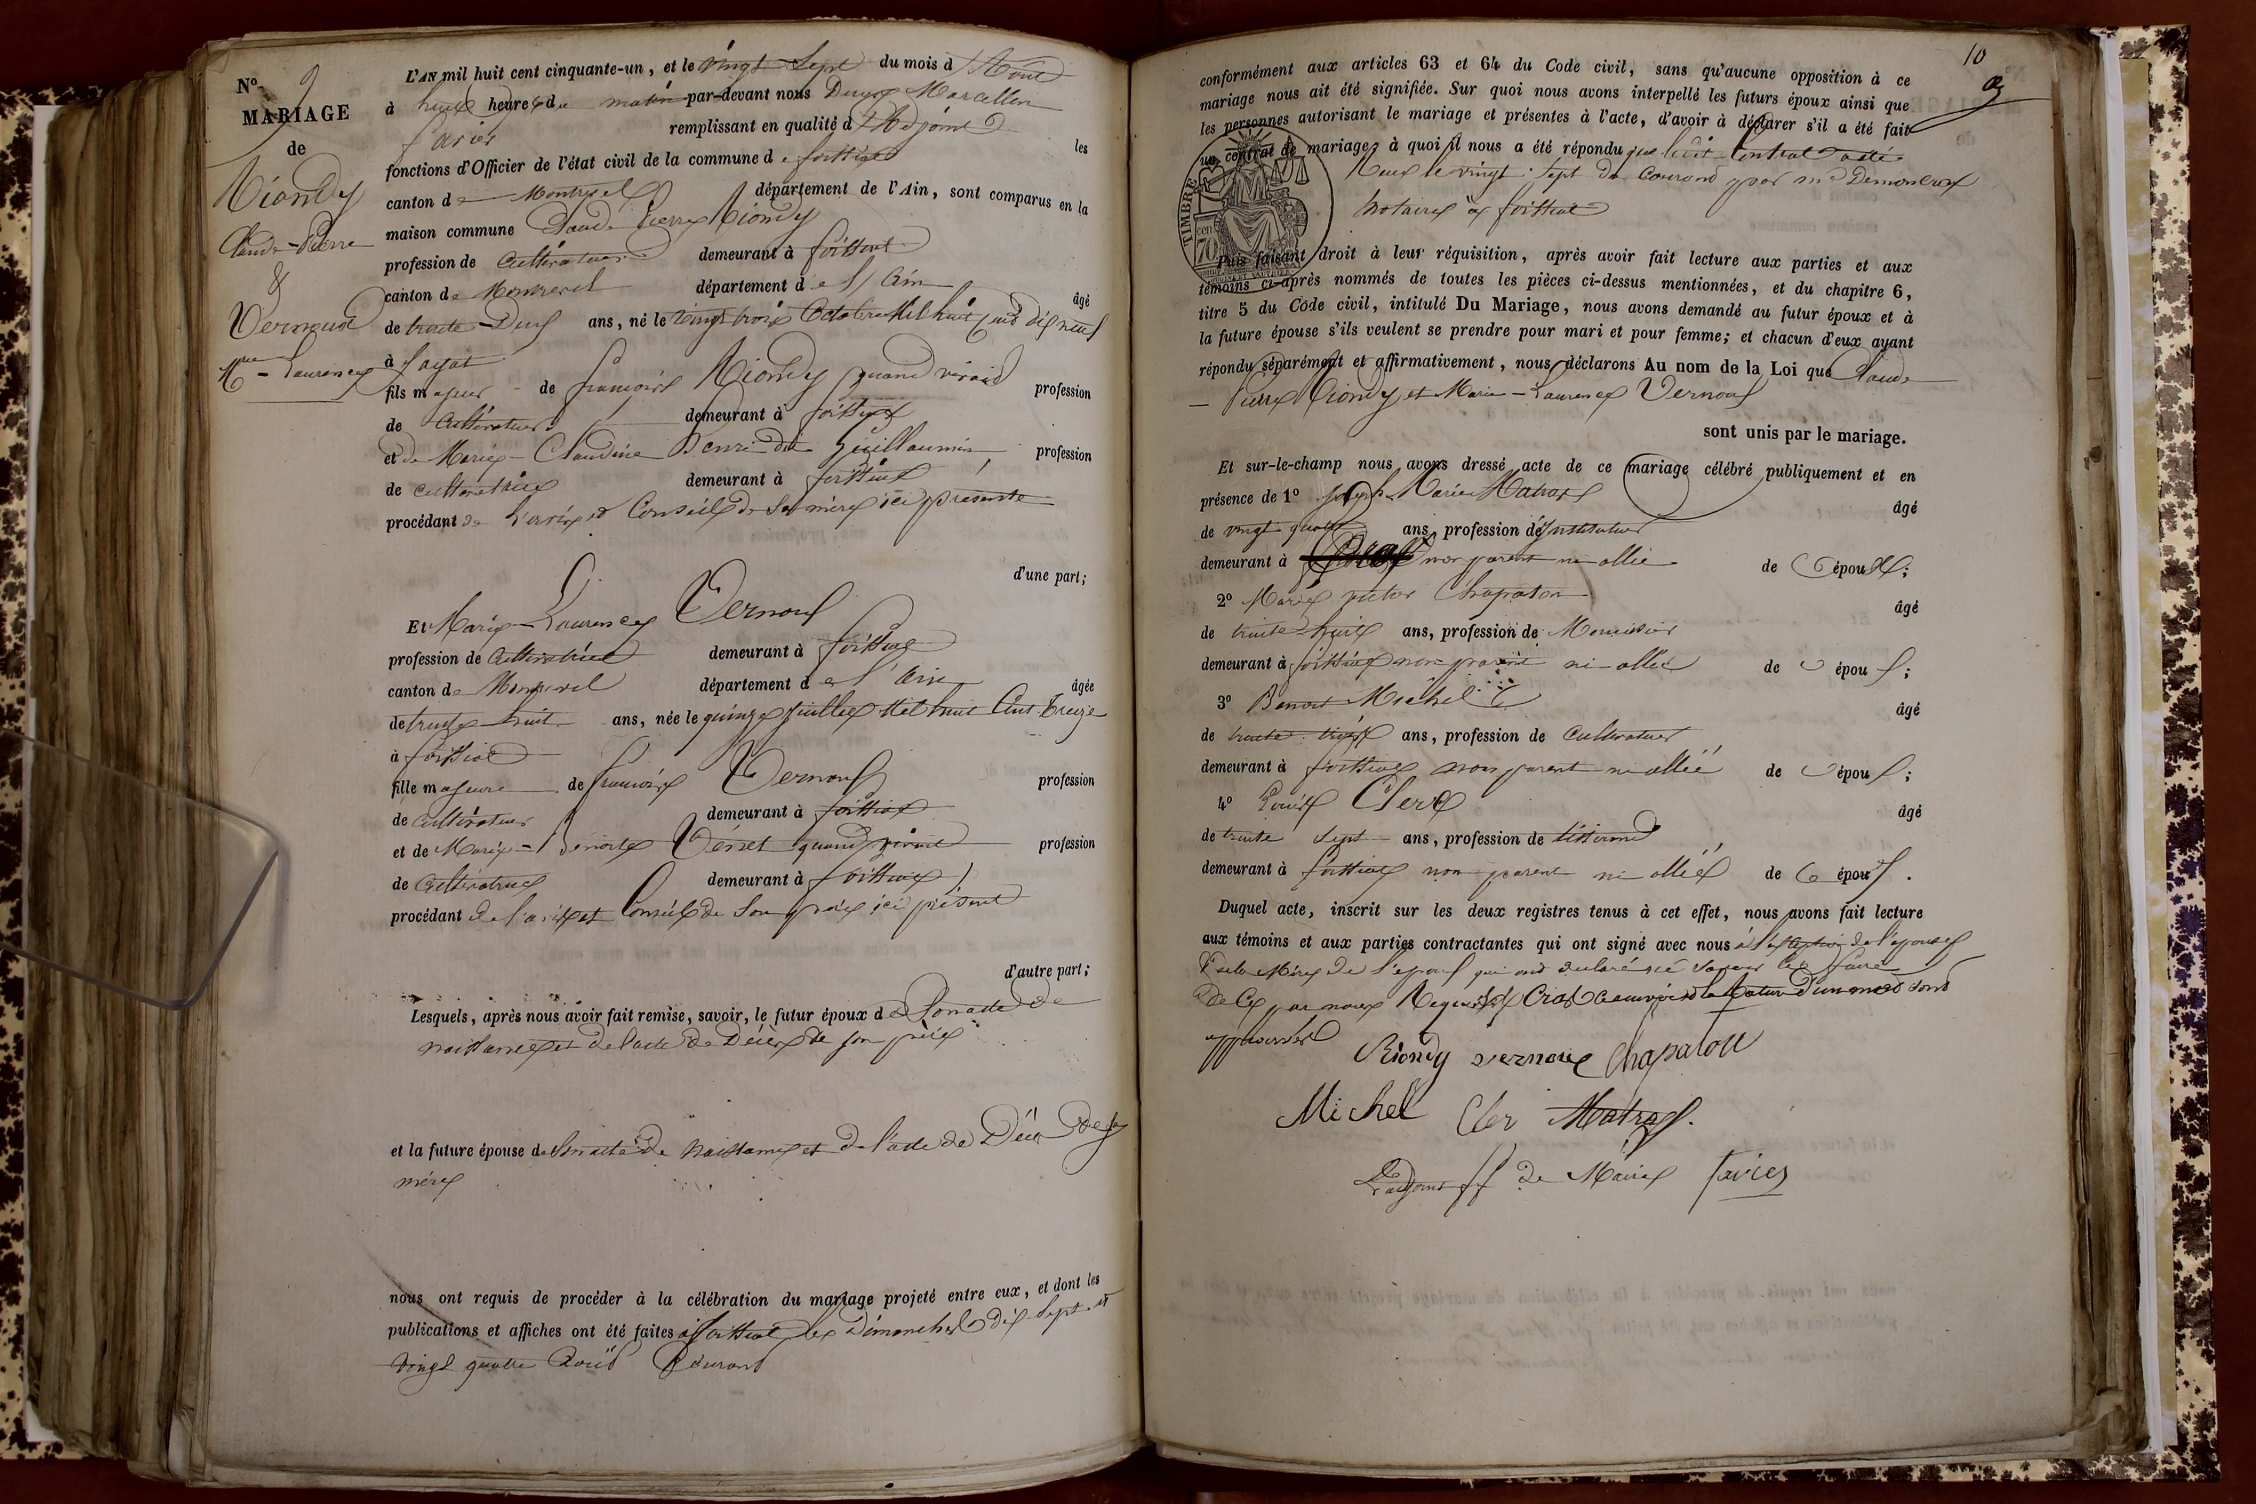 N° 9
MARIAGE
de
Riondy
Claude-Pierre
&
Vernoux
Mie - Laurence
L'AN mil huit cent cinquante-un, et le vingt Sept du mois d'Août
à huit heures du matin par-devant nous Marcellin
favier remplissant en qualité d'Adjoint les
fonctions d'Officier de l'état civil de la commune de foissiat
canton de Montrevel département de l'Ain, sont comparus en la
maison commune Claude Pierre Riondy
profession de Cultivateur demeurant à foissiat
canton de Montrevel département de l'Ain âgé
de trente-Deux ans, né le vingt trois Octobre Mil huit Cent dix neuf
à
fils majeur de françois Riondy quand vivait profession
de Cultivateur demeurant à foissiat
et de Marie-Claudine Henri dit Guillaumin profession
de cultivatrice demeurant à foissiat
procédant de l'avis et Conseil de Sa mère ici présente
d'une part;
Et Marie-Laurence Vernoux
profession de Cultivatrice demeurant à foissiat
canton de Montrevel département de l'Ain âgée
de trente-huit ans, née le quinze juillet Mil huit Cent Treize
à foissiat
fille majeure de françois Vernoux profession
de Cultivateur demeurant à foissiat
et de Marie-Benoite quand vivait profession
de Cultivatrice demeurant à foissiat
procédant de l'avis et Conseil de Son père ici présent
d'autre part;
Lesquels, après nous avoir fait remise, savoir, le futur époux de Son acte de
naissance et de l'acte de Décès de son père
et la future épouse de Son acte de naissance et de l'acte de Décès de sa
mère
nous ont requis de procéder à la célébration du mariage projeté entre eux, et dont les
publications et affiches ont été faites à foissiat les Dimanches dix-Sept et
vingt quatre Août Courant
10
conformément aux articles 63 et 64 du Code civil, sans qu'aucune opposition à ce
mariage nous ait été signifiée. Sur quoi nous avons interpellé les futurs époux ainsi que
les personnes autorisant le mariage et présentes à l'acte, d'avoir à déclarer s'il a été fait
un contrat de mariage; à quoi il nous a été répondu que ledit Contrat a été
Reçu le vingt-Sept du Courant par Me
notaire à foissiat
TIMBRE
70
Puis faisant droit à leur réquisition, après avoir fait lecture aux parties et aux
témoins ci-après nommés de toutes les pièces ci-dessus mentionnées, et du chapitre 6,
titre 5 du Code civil, intitulé Du Mariage, nous avons demandé au futur époux et à
la future épouse s'ils veulent se prendre pour mari et pour femme; et chacun d'eux ayant
répondu séparément et affirmativement, nous déclarons Au nom de la Loi que Claude
Pierre Riondy et Marie-Laurence Vernoux
sont unis par le mariage.
Et sur-le-champ nous avons dressé acte de ce mariage célébré publiquement et en
présence de 1° Joseph Marie Matras âgé
de vingt quatre ans, profession d'Instituteur
demeurant à non parent ni allié de l'époux;
2° Marie victor Chapaton âgé
de trente-huit ans, profession de Menuisier
demeurant à foissiat non parent ni allié de l'époux;
3° Benoit Michel âgé
de trente-trois ans, profession de Cultivateur
demeurant à foissiat non parent ni allié de l'époux;
4° Louis Clerc âgé
de trente Sept ans, profession de tisserand
demeurant à foissiat non parent ni allié de l'époux.
Duquel acte, inscrit sur les deux registres tenus à cet effet, nous avons fait lecture
aux témoins et aux parties contractantes qui ont signé avec nous à l'exception de l'épouse
et de la Mère de l'époux qui ont déclaré ne Savoir le faire
de Ce par nous Requis d'un mot sont
approuvés
Riondy vernoux Chapaton
Michel Cler Matras.
L'adjoint ff de Maire favier